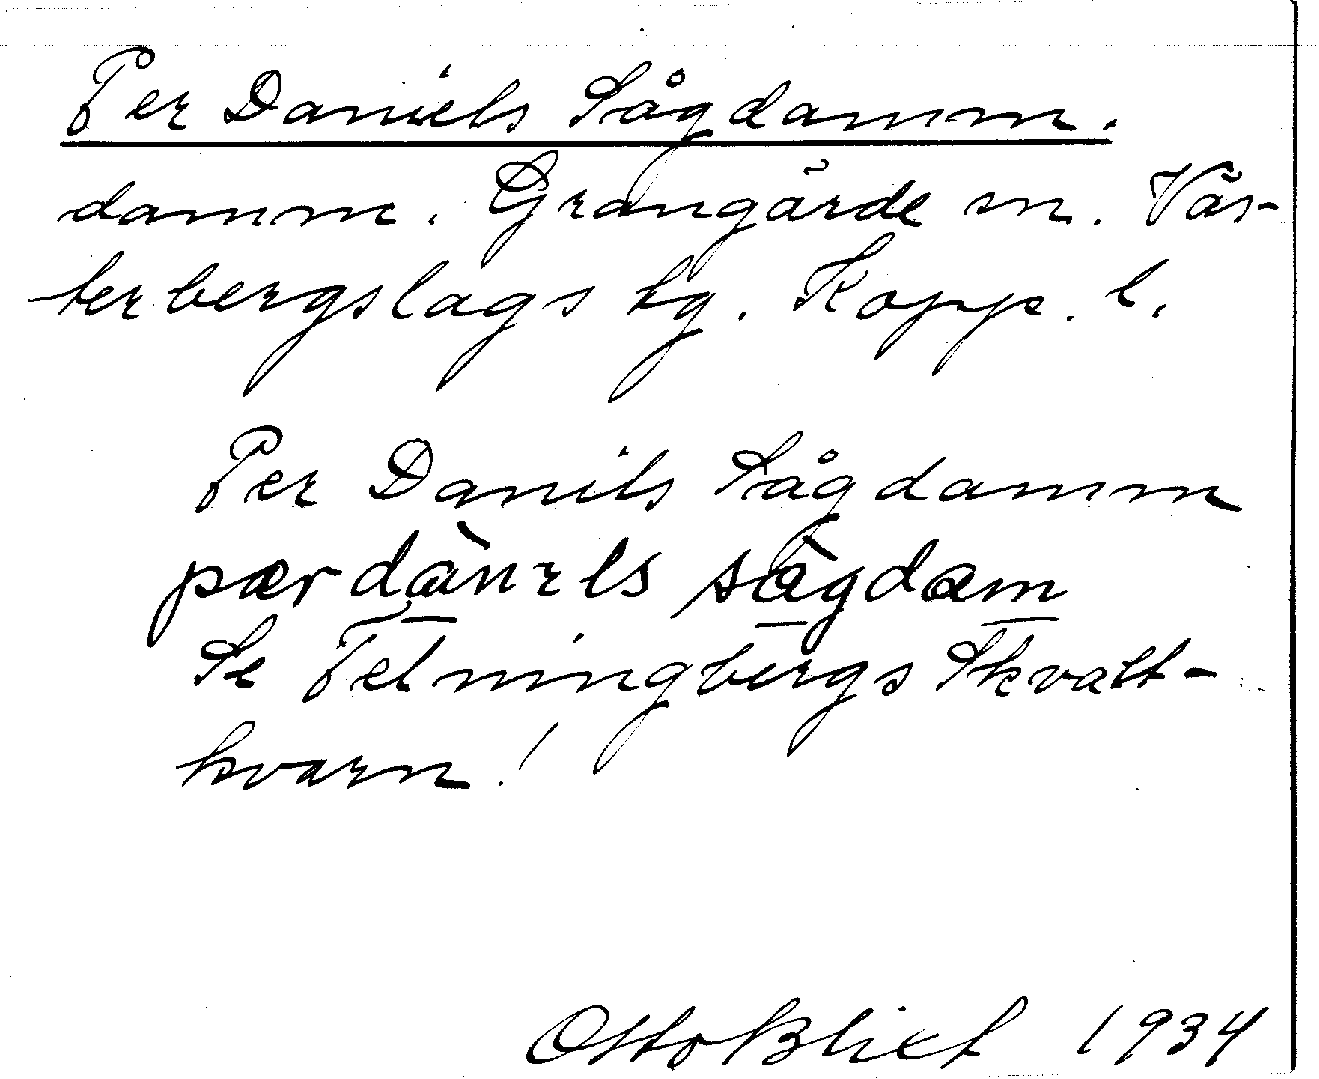 Per Daniels Sågdamm.
damm. Grangärde sn. Väs-
terbergslags hg. Kopp. l.
Per Danils Sågdamm
pær dànɩls sàgdam
Se Tetningbergs Skvalt-
kvarn!
Otto Blixt 1934